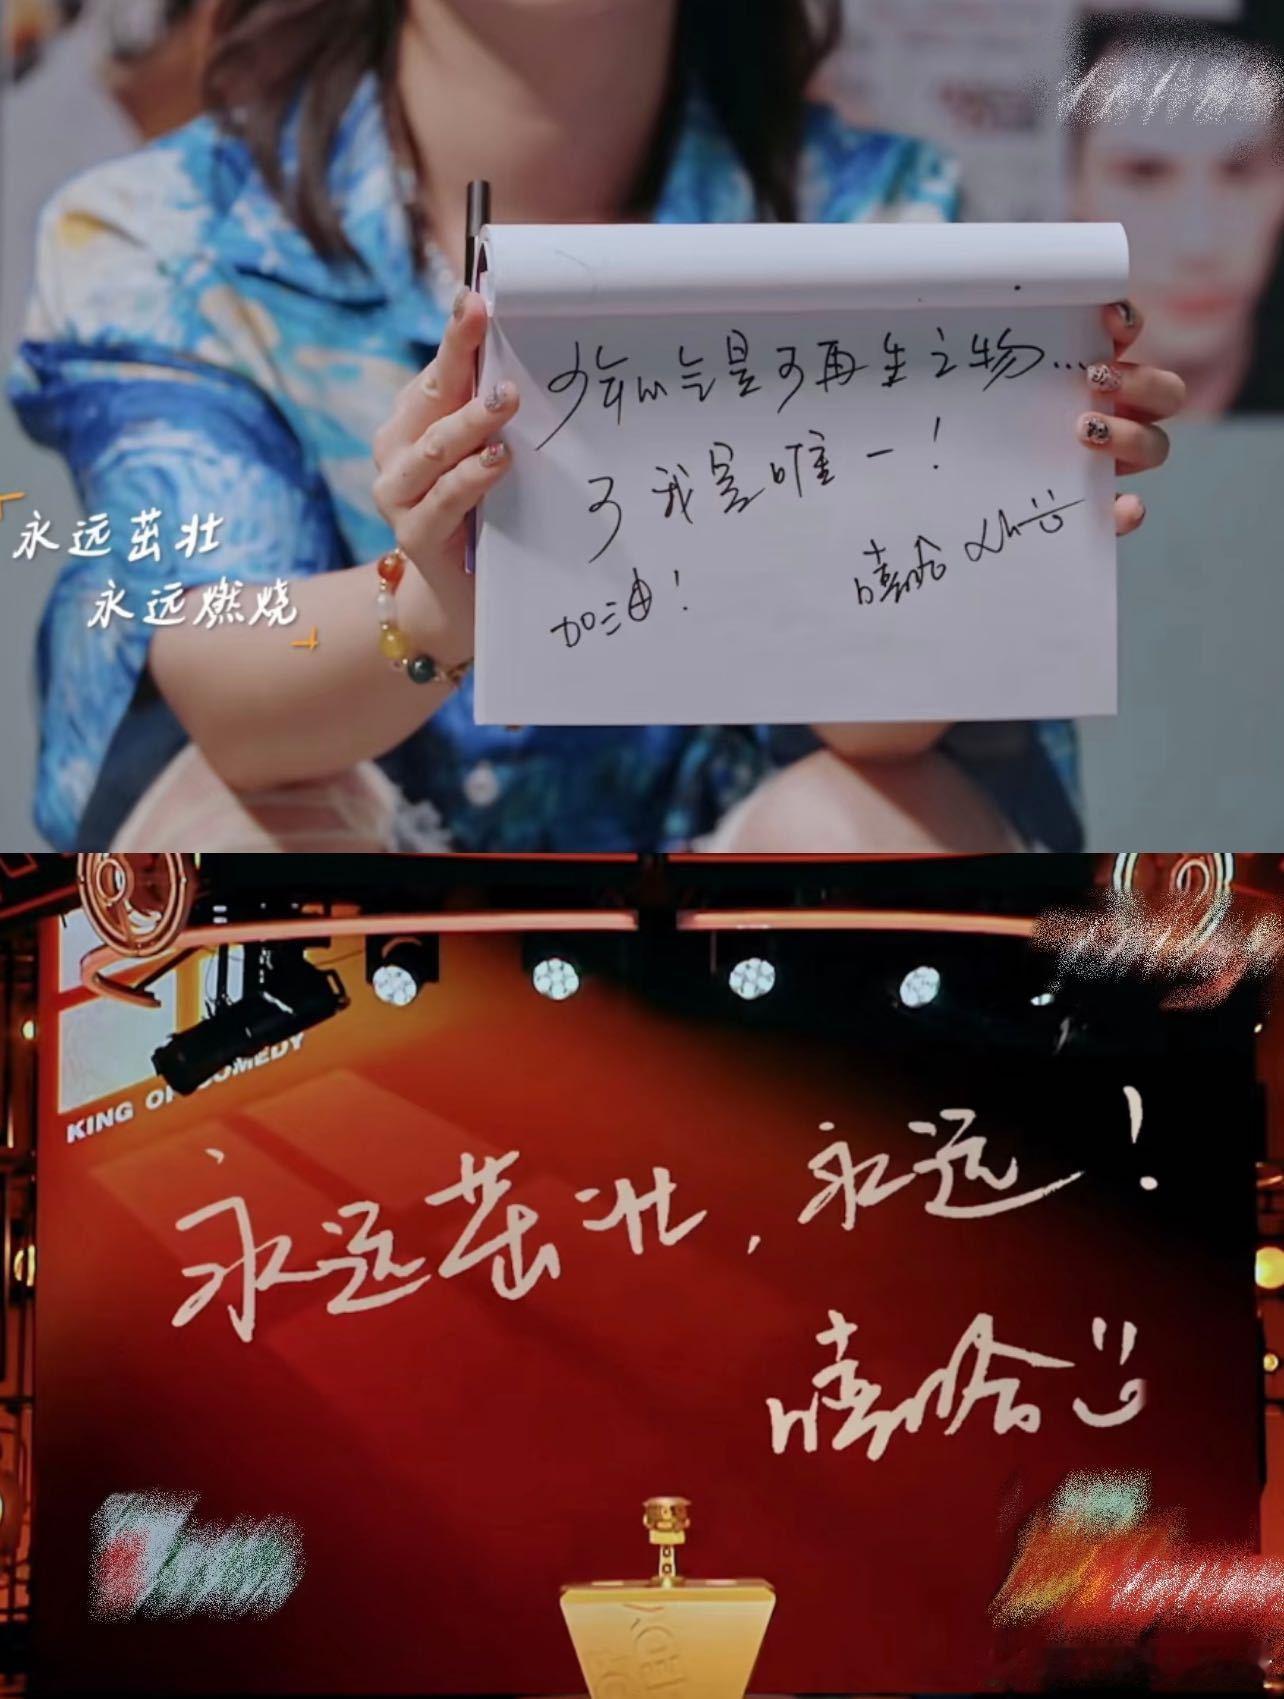 少年心气是可再生之物…
可我是唯一!
加油!
嘻哈
永远茁壮
永远燃烧
KING OF COMEDY
永远茁壮,永远!
嘻哈